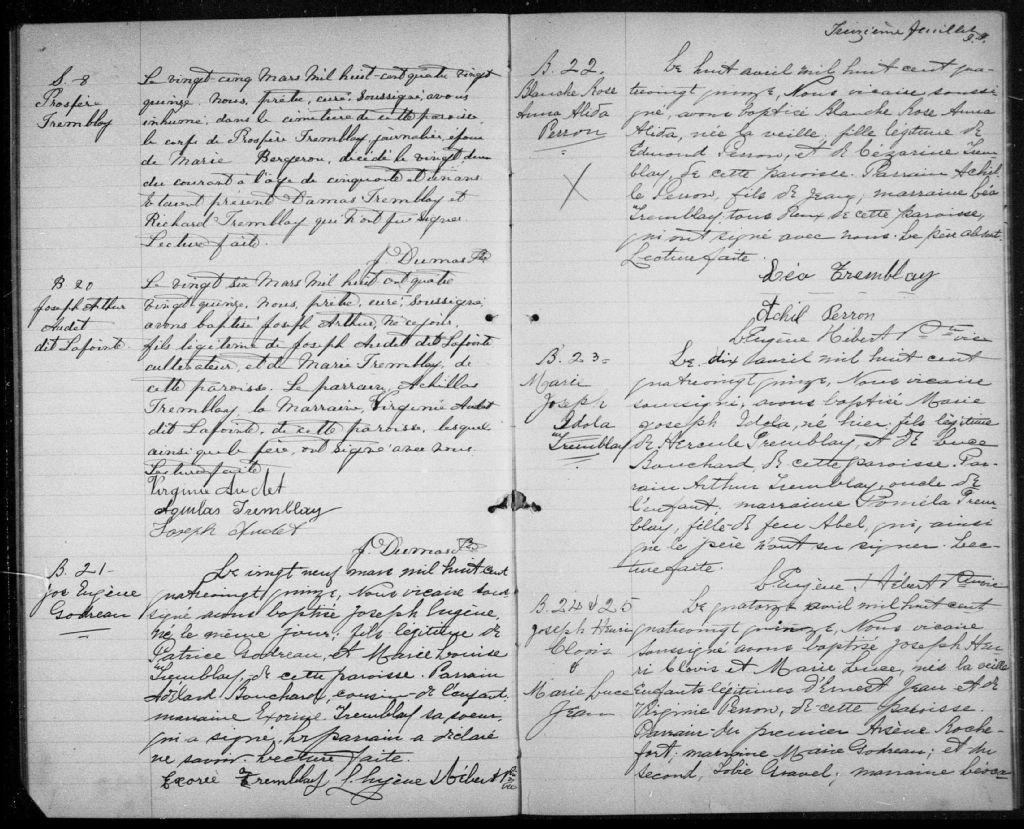 S. 8
Prospère
Tremblay
Le vingt cinq Mars Mil huit-cent quatre vingt
quinze, Nous, prêtre, curé, soussigné, avons
inhumé, dans le cimetière de cette paroisse,
le corps de Prospère Tremblay, journalier, époux
de Marie Bergeron, décédé le vingt deux
du courant à l'âge de cinquante et un ans
Etaient présent Damas Tremblay et
Richard Tremblay qui n'ont pu signer.
Lecture faite.
J. Dumas Ptre
B 20
Joseph Arthur
Audet
dit Lapointe
Le vingt six Mars Mil huit cent quatre
vingt quinze, nous, prêtre, curé, soussigné
avons baptisé Joseph Arthur, né ce jour,
fils légitime de Joseph Audet dit Lapointe
cultivateur, et de Marie Tremblay, de
cette paroisse. Le parrain, Achillas
Tremblay, la Marraine, Virginie Audet
dit Lapointe, de cette paroisse, lesquels
ainsi que le père, ont signé avec nous.
Lecture faite
Virginie Audet
Aquilas Tremblay
Joseph Audet
J. Dumas Ptre
B. 21-
Jos Eugène
Godreau
Le vingt neuf mars mil huit cent
quatrevingt quinze, Nous vicaire sous
signé avons baptisé Joseph Eugène,
né le même jour, fils légitime de
Patrice Godreau, et Marie Louise
Tremblay, de cette paroisse. Parrain
Adélard Bouchard, cousin de l'enfant,
marraine Exorise Tremblay sa soeur,
qui a signé, le parrain a déclaré
ne savoir. Lecture faite.
Exorée Tremblay L. Eugène Hébert Ptre
Treizième feuillet
B. 22.
Blanche Rose
Anna Alida
Perron
Le huit avril mil huit cent qua-
trevingt quinze, Nous vicaire soussi-
gné, avons baptisé Blanche Rose Anna
Alida, née la veille, fille légitime de
Edmond Perron, et de Cézarine Trem
blay, de cette paroisse. Parrain Achil-
le Perron, fils de Jean, marraine Léa
Tremblay, tous deux de cette paroisse,
qui ont signé avec nous. Le père absent.
Lecture faite.
Léa Tremblay
Achil Perron
L Eugène Hébert Ptre vice
B. 23-
Marie
Joseph
Idola
Tremblay
Le dix avril mil huit cent
quatrevingt quinze, Nous vicaire
soussigné, avons baptisé Marie
Joseph Idola, né hier, fils légitime
de Hercule Tremblay et de Luce
Bouchard, de cette paroisse. Par-
rain Arthur Tremblay, oncle de
l'enfant, marraine Poméla Trem-
blay, fille de feu Abel, qui, ainsi
que le père n'ont su signer. Lec-
ture faite.
L Eugène Hébert Ptre vicaire
B. 24 & 25
Joseph Henri
Clovis
&
Marie Luce
Jean
Le quatorze avril mil huit cent
quatrevingt quinze, Nous vicaire
soussigné avons baptisé Joseph Hen-
ri Clovis et Marie Luce, nés la veille
enfants légitimes d'Ernest Jean et de
Virginie Perron, de cette paroisse.
Parrain du premier Arsène Roche-
fort; marraine Marie Godreau; et du
second, Tobie Gravel; marraine